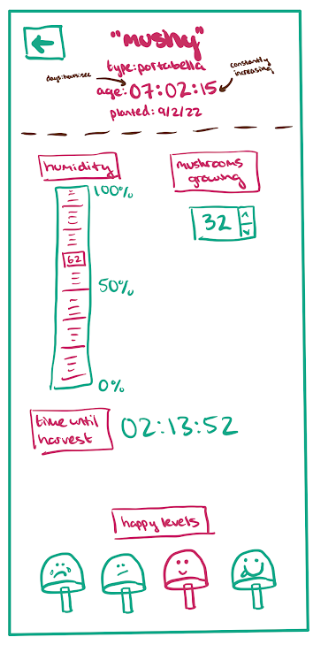 "mushy"
type: portabella
days:hours:sec
age: 07:02:15
constantly increasing
planted: 9/2/22
humidity
mushrooms
growing
100%
32
62
50%
0%
time until
harvest
02:13:52
happy levels